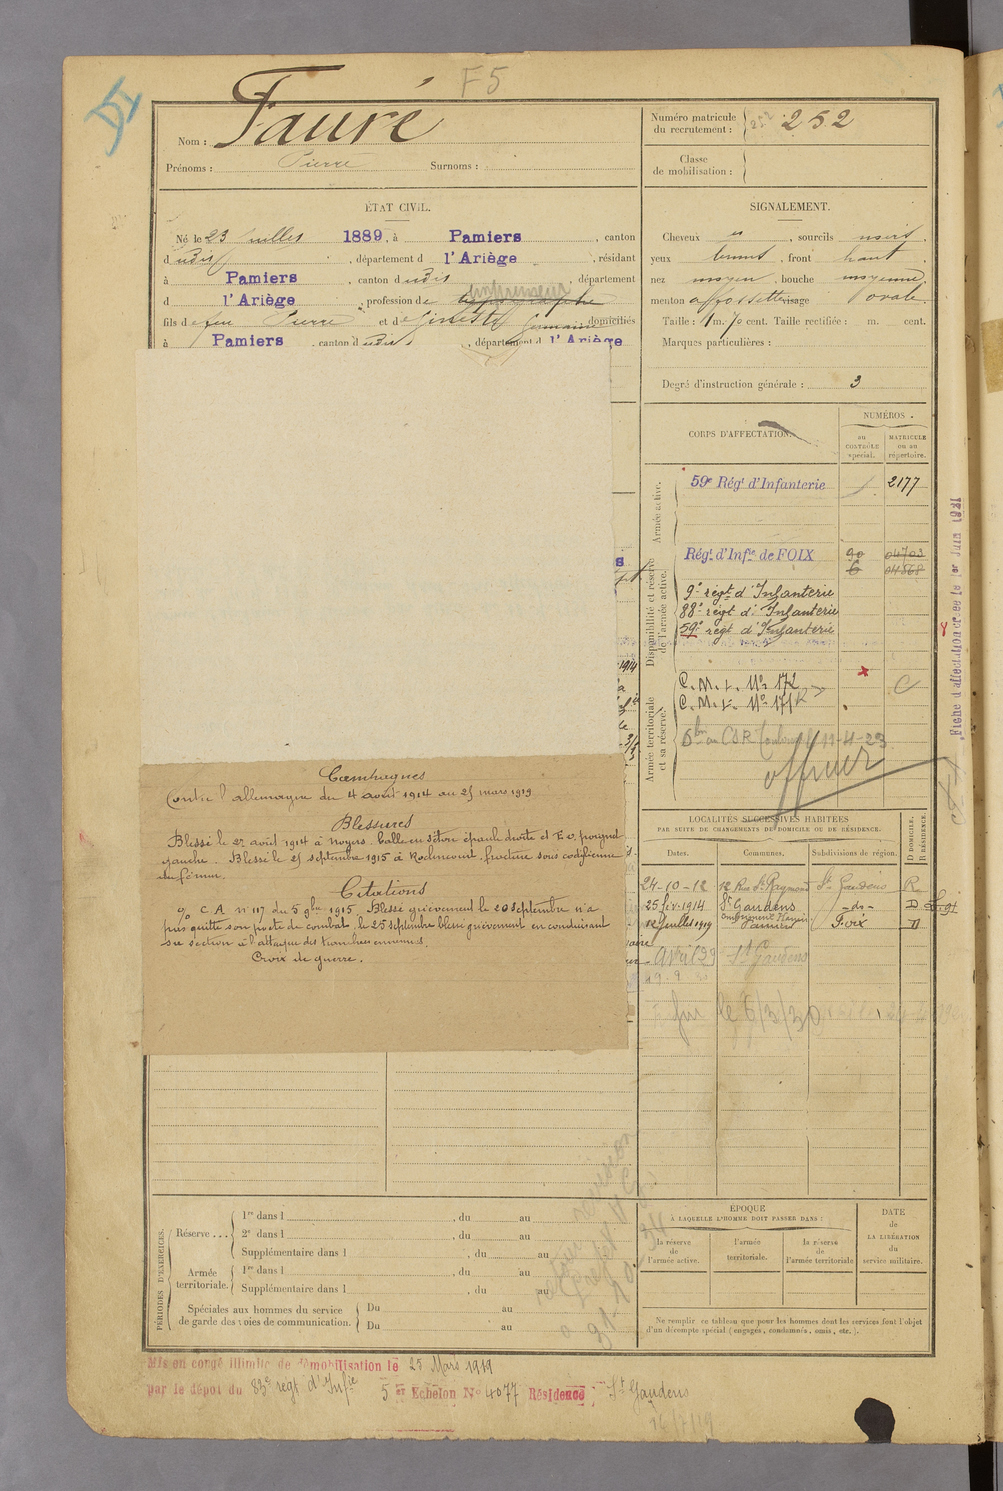 F5
Nom : Fauré
Prénoms : Pierre Surnoms :
Numéro matricule du recrutement : 252 252
Classe de mobilisation :
ÉTAT CIVIL.
Né le 23 Juillet 1889, à Pamiers, canton
d udit, département d l'Ariège, résidant
à Pamiers, canton d udit département
d l'Ariège, profession de typographe imprimeur
fils de feu Pierre et de Ginesty Germaine domiciliés
à Pamiers, canton d udit, département d l'Ariège
SIGNALEMENT.
Cheveux, sourcils noirs,
yeux bruns, front haut,
nez moyen, bouche moyenne,
menton a fossette visage ovale.
Taille : 1 m. 70 cent. Taille rectifiée : m. cent.
Marques particulières :
Degré d'instruction générale : 3
CORPS D'AFFECTATION.
NUMÉROS.
au CONTRÔLE spécial.
MATRICULE ou au répertoire.
Armée active.
59e Régt d'Infanterie 2177
Disponibilité et réserve de l'armée active.
Régt d'Infie de FOIX 90 04703
6 04668
9e régt d'Infanterie
88e régt d'Infanterie
59e régt d'Infanterie
Armée territoriale et sa réserve.
C. M. I. No 172
C. M. I. No 171
officier
Fiche d'affectation créée le 1er Juin 1921
Campagnes
Contre l'allemagne du 4 août 1914 au 25 mars 1919
Blessures
Blessé le 27 août 1914 à Noyers. balle en séton épaule droite et E.O. poignet
gauche. Blessé le 25 septembre 1915 à Roclincourt, fracture sous
du fémur.
Citations
O/o C.A. no 117 du 5 9bre 1915 Blessé grièvement le 20 septembre n'a
pas quitté son poste de combat, le 25 septembre blessé grièvement en conduisant
sa section à l'attaque des tranchées ennemies.
Croix de guerre.
LOCALITÉS SUCCESSIVES HABITÉES
PAR SUITE DE CHANGEMENTS DE DOMICILE OU DE RÉSIDENCE.
Dates. Communes. Subdivisions de région. D DOMICILE. R RÉSIDENCE.
24-10-12 12 Rue St Raymond St Gaudens R
25 fév. 1914 St Gaudens -do- D
12 Juillet 1919 Pamiers Foix D
Avril 29 St Gaudens
le 6/3/30
PÉRIODES D'EXERCICES.
Réserve ... 1re dans l , du au
2e dans l , du au
Supplémentaire dans l , du au
Armée territoriale. 1re dans l , du au
Supplémentaire dans l , du au
Spéciales aux hommes du service de garde des voies de communication. Du au
Du au
ÉPOQUE
À LAQUELLE L'HOMME DOIT PASSER DANS :
la réserve de l'armée active.
l'armée territoriale.
la réserve de l'armée territoriale
DATE de LA LIBÉRATION du service militaire.
Ne remplir ce tableau que pour les hommes dont les services font l'objet
d'un décompte spécial (engagés, condamnés, omis, etc.).
Mis en congé illimité de démobilisation le 25 Mars 1919
par le dépôt du 83e régt d'Infie 5 er Echelon No 4077 Résidence, St Gaudens